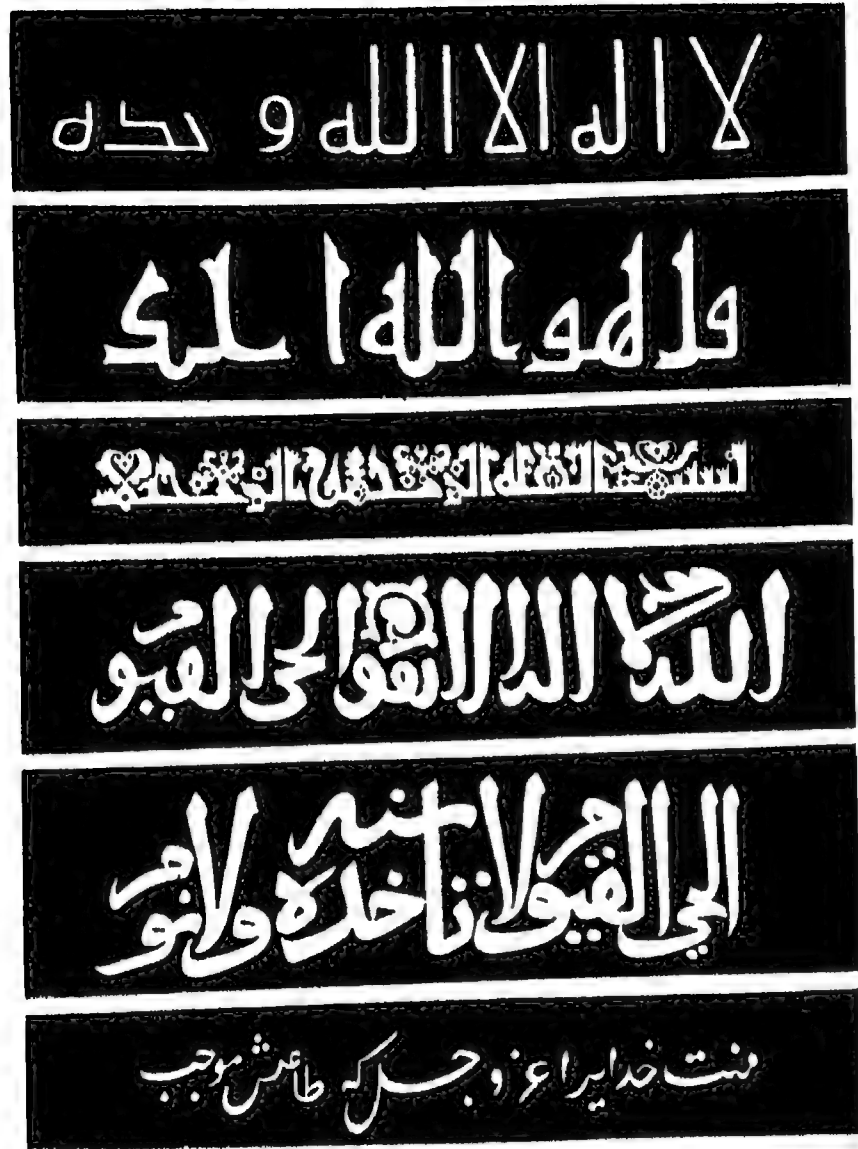 لا اله الا الله وحده
قل هو الله احد
بسم الله الرحمن الرحيم
الله لا اله الا هو الحي القيو
الحي القيوم لا تاخذه سنه ولا نوم
منت خدایرا عز و جل که طاعتش موجب